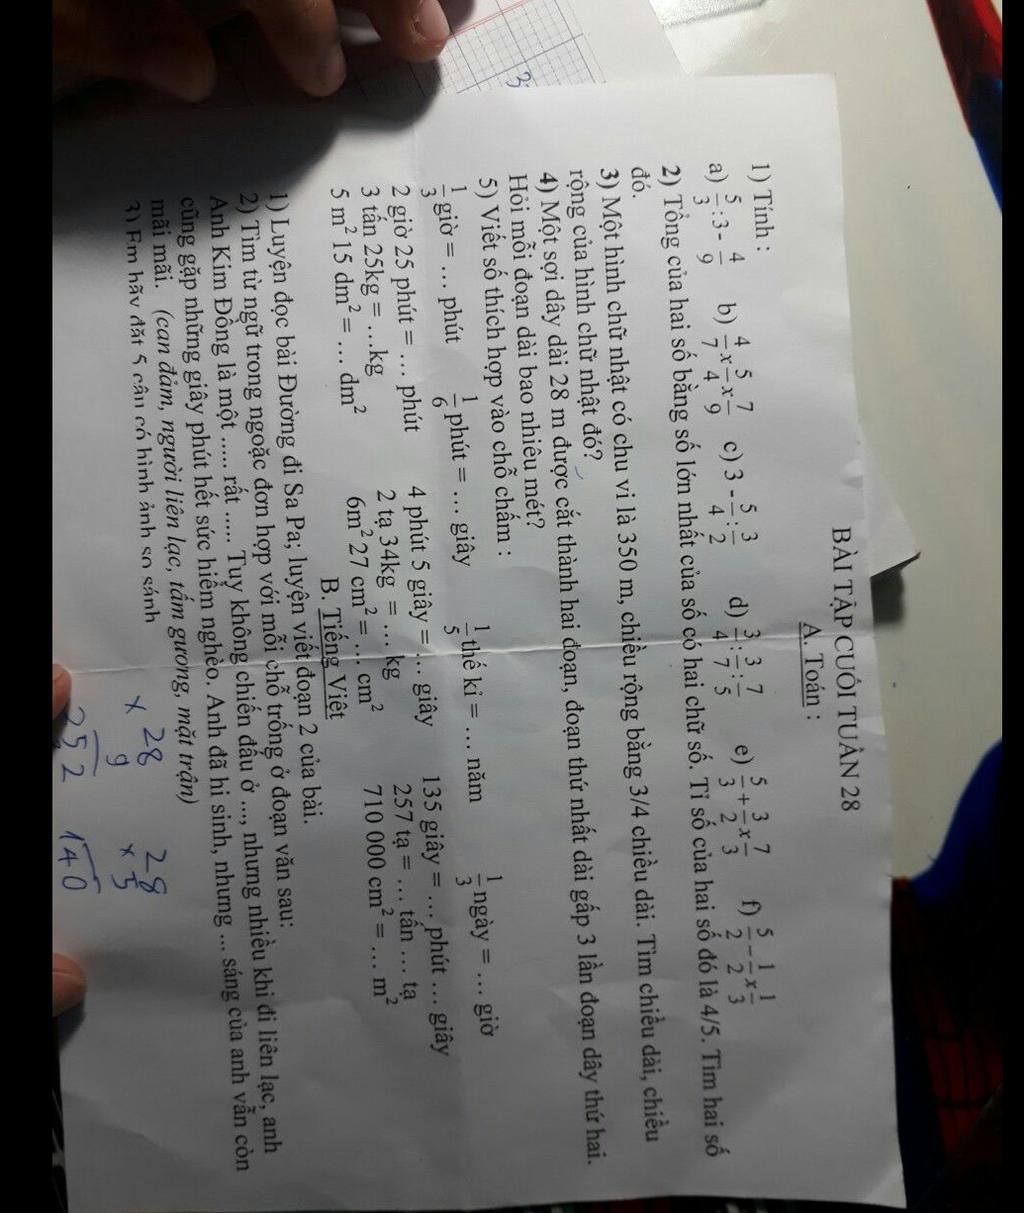 BÀI TẬP CUỐI TUẦN 28
A. Toán :
1) Tính :
a) 5/3 : 3 - 4/9 b) 4/7 x 5/4 x 7/9 c) 3 - 5/4 : 3/2 d) 3/4 : 3/7 : 7/5 e) 5/3 + 3/2 x 7/3 f) 5/2 - 1/2 x 1/3
2) Tổng của hai số bằng số lớn nhất của số có hai chữ số. Tỉ số của hai số đó là 4/5. Tìm hai số
đó.
3) Một hình chữ nhật có chu vi là 350 m, chiều rộng bằng 3/4 chiều dài. Tìm chiều dài, chiều
rộng của hình chữ nhật đó?
4) Một sợi dây dài 28 m được cắt thành hai đoạn, đoạn thứ nhất dài gấp 3 lần đoạn dây thứ hai.
Hỏi mỗi đoạn dài bao nhiêu mét?
5) Viết số thích hợp vào chỗ chấm :
1/3 giờ = ... phút 1/6 phút = ... giây 1/5 thế kỉ = ... năm 1/3 ngày = ... giờ
2 giờ 25 phút = ... phút 4 phút 5 giây = ... giây 135 giây = ... phút ... giây
3 tấn 25kg = ...kg 2 tạ 34kg = ... kg 257 tạ = ... tấn ... tạ
5 m² 15 dm² = ... dm² 6m² 27 cm² = ... cm² 710 000 cm² = ... m²
B. Tiếng Việt
1) Luyện đọc bài Đường đi Sa Pa; luyện viết đoạn 2 của bài.
2) Tìm từ ngữ trong ngoặc đơn hợp với mỗi chỗ trống ở đoạn văn sau:
Anh Kim Đồng là một ..... rất ..... Tuy không chiến đấu ở ..., nhưng nhiều khi đi liên lạc, anh
cũng gặp những giây phút hết sức hiểm nghèo. Anh đã hi sinh, nhưng ... sáng của anh vẫn còn
mãi mãi. (can đảm, người liên lạc, tấm gương, mặt trận)
3) Em hãy đặt 5 câu có hình ảnh so sánh
28 28
x 9 x 5
252 140
3